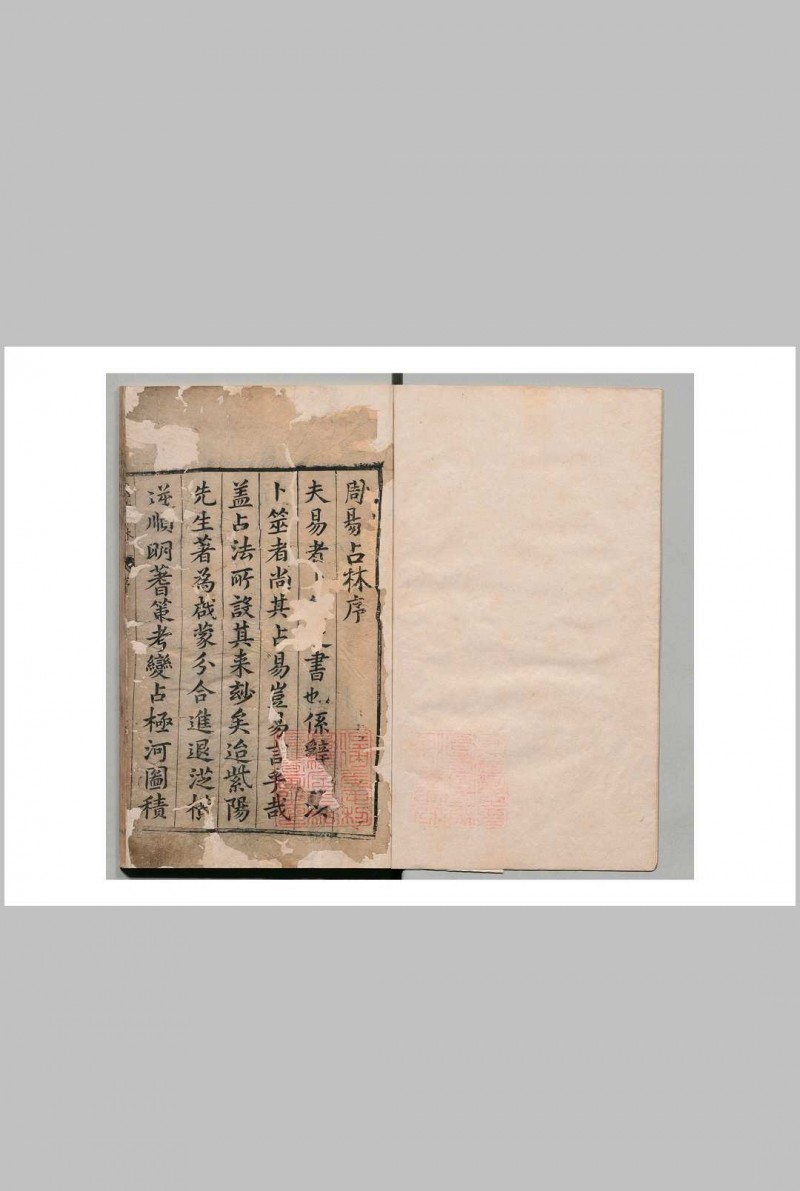 周易占林序
夫易者書也係辭
卜筮者尚其占易豈易言乎哉
盖占法所設其来玅矣迨紫陽
先生著為啟蒙分合進退從横
逆順明蓍策考變占極河圖積